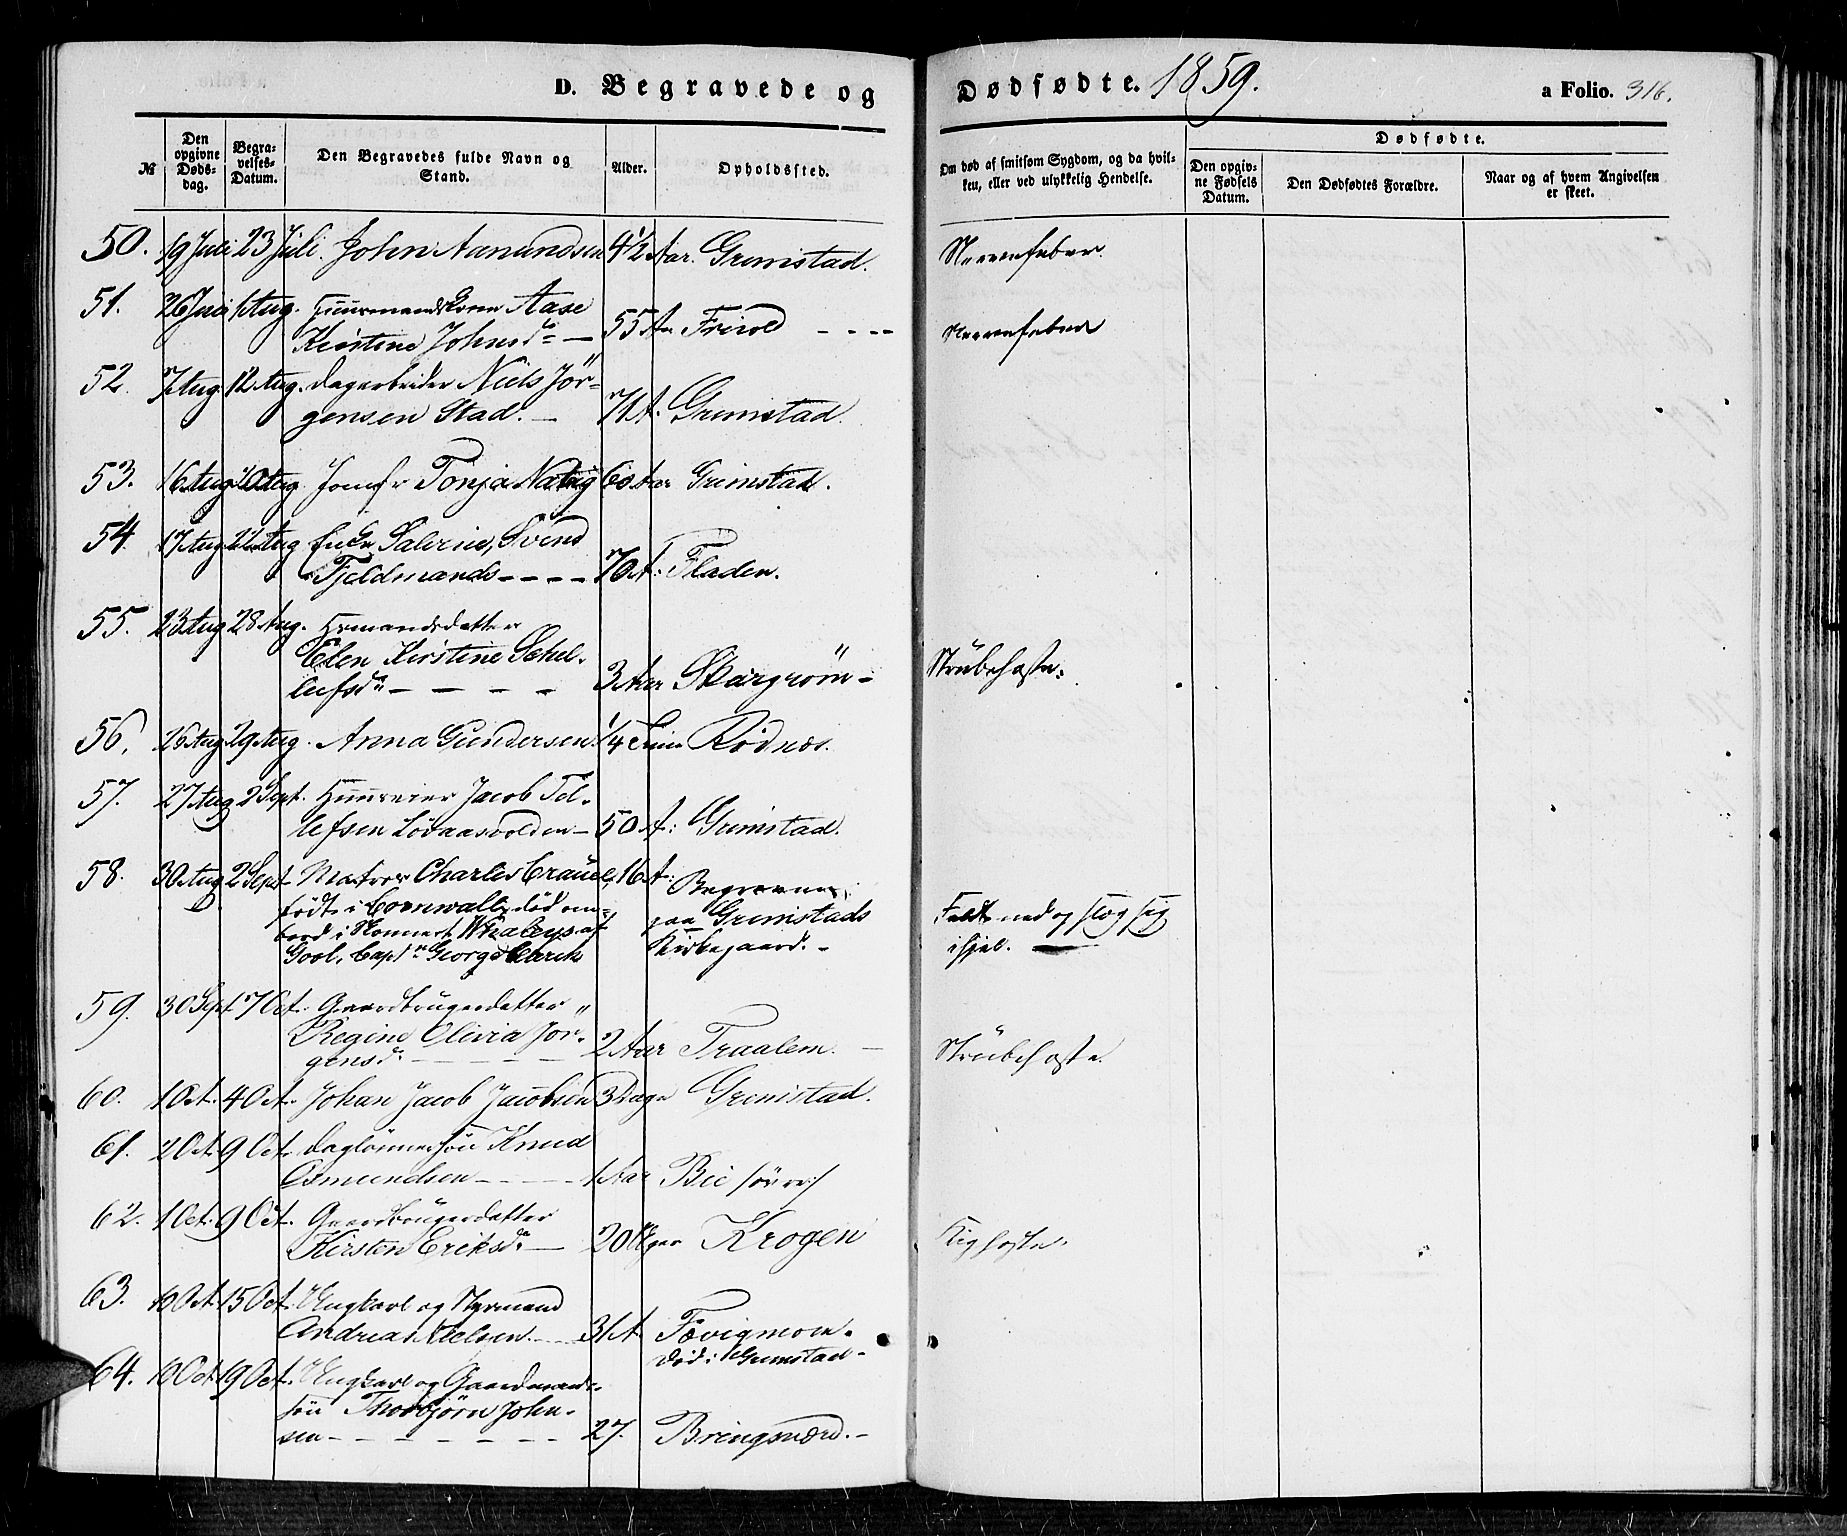 D. Begravede og Dødfødte. 1859. a Folio. 316.
№ Den opgivne Dødsdag. Begravelses-Datum. Den Begravedes fulde Navn og Stand. Alder. Opholdssted. Om død af smitsom Sygdom, og da hvilken, eller ved ulykkelig Hendelse. Dødfødte.
Den opgivne Fødsels Datum. Den Dødfødtes Forældre. Naar og af hvem Angivelsen er skeet.
50. 19 Juli 23 Juli. John Aanundsen 4 1/2 Aar. Grimstad. Nervefeber.
51. 26 Juli 1 Aug. Huusmandskone Aase
Kirstine Johnsdr — 55 Aar Frivold - - - - Nervefeber
52. 7 Aug. 12 Aug. Dagarbeider Niels Jör-
gensen Stad. — 71 A. Grimstad.
53. 16 Aug 20 Aug. Jomfr Tonja Natvig 60 Aar Grimstad.
54. 17 Aug 22 Aug Enke Salvine, Svend
Fjeldmands - - - - 70 A: Fladen.
55. 23 Aug 28 Aug. Hsmandsdatter
Elen Kirstine Schel-
lefsdr — — — — 3 Aar Skargröm - Strubehoste.
56. 26 Aug 29 Aug. Anna Gundersen. 1/4 Time Rödnæs.
57. 27 Aug 2 Sept. Huuseier Jacob Tel-
lefsen Lövaasvolden — 50 A: Grimstad.
58. 30 Aug 2 Sept Matros Charles Craue, 16 A: Begraven
födt i Cornwall, död om- paa Grimstads Faldt ned og slog sig
bord i Skonnert Whaleys af Kirkegaard. - ihjel.
Gool, Capt n George Clarck
59. 30 Sept 7 Oct. Gaardbrugerdatter
Regine Olivia Jör-
gensdr — — — — 2 Aar Traalem. — Strubehoste
60. 1 Oct. 4 Oct. Johan Jacob Jacobsen 3 Dage Grimstad.
61. 2 Oct. 9 Oct. Daglönnersön Knud
Osmundsen - - - - 1 Aar Bie
62. 1 Oct. 9 Oct. Gaardbrugerdatter
Kirsten Eriksdr — 20 Uger Krogen Kighoste.
63. 10 Oct. 15 Oct. Ungkarl og Styrmand
Andreas Nielsen. - - 31 A. Fævigmoen.
død i Grimstad -
64. 10 Oct 19 Oct. Ungkarl og Gaardmands-
sön Thorbjörn John-
sen - - - - - - 27. Bringsværd. -